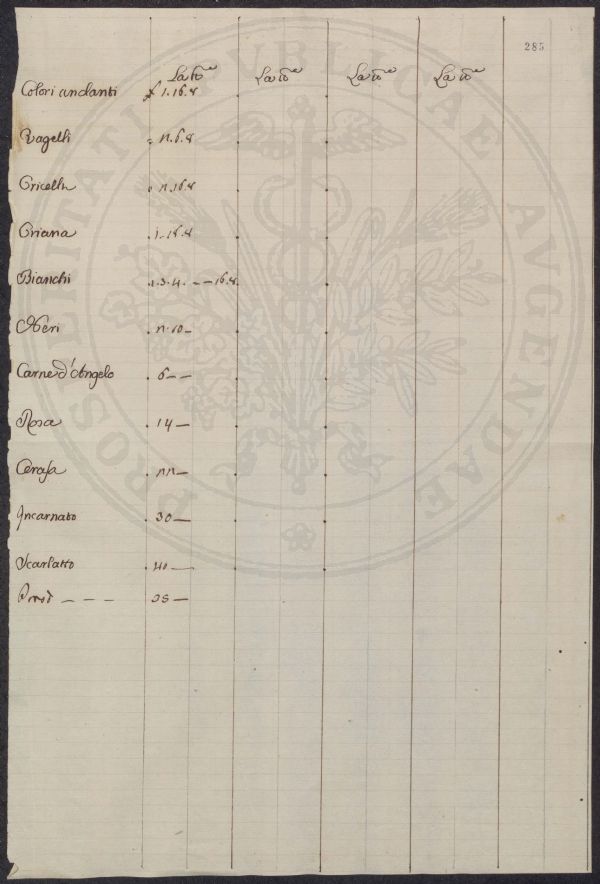 285
La lb.e La lb.e La lb.e La lb.e
Colori andanti £ 1.16.8
Vagelli . n.6.8
Gricelli . n.16.8
Griana . 1.16.8
Bianchi .1.3.4. — — 16.8
Neri . n.10 —
Carne d'Angelo . 6 — —
Rosa . 14 —
Cerasa . nn —
Incarnato . 30 —
Scarlatto . 40 —
— — — 35 —
PROSPERITATI PUBLICAE AVGENDAE